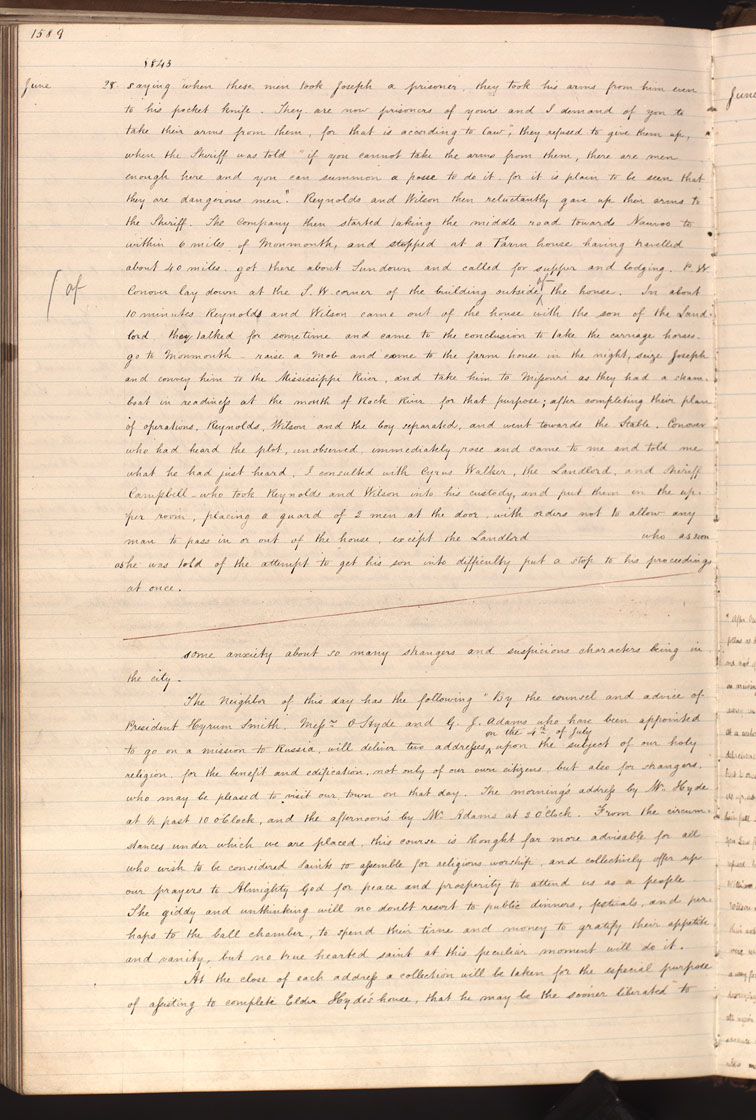 1589
1843
June 28. saying when these men took Joseph a prisoner, they took his arms from him even
to his pocket knife. They are now prisoners of yours and I demand of you to
take their arms from them, for that is according to law", they refused to give them up,
when the Sheriff was told "if you cannot take the arms from them, there are men
enough here and you can summon a posse to do it for it is plain to be seen that
they are dangerous men". Reynolds and Wilson then reluctantly gave up their arms to
the Sheriff. The Company then started taking the middle road towards Nauvoo to
within 6 miles of Monmouth, and stopped at a Farm house having travelled
about 40 miles, got there about Sundown and called for supper and lodging. P. W.
Conover lay down at the S. W. corner of the building outside of the house. In about
/ of
10 minutes Reynolds and Wilson came out of the house with the son of the Land-
lord they talked for sometime and came to the conclusion to take the carriage horses
go to Monmouth raise a Mob and come to the farm house in the night, seize Joseph
and convey him to the Mississippi River, and take him to Missouri as they had a steam-
boat in readiness at the mouth of Rock River for that purpose; after completing their plan
of operations, Reynolds, Wilson and the boy separated, and went towards the Stable. Conover
who had heard the plot, unobserved, immediately rose and came to me and told me
what he had just heard, I consulted with Cyrus Walker, the Landlord, and Sheriff
Campbell who took Reynolds and Wilson into his custody, and put them in the up-
per room, placing a guard of 2 men at the door, with orders not to allow any
man to pass in or out of the house, except the Landlord who as soon
as he was told of the attempt to get his son into difficulty put a stop to his proceedings
at once.
some anxiety about so many strangers and suspicious characters being in
the city.
The Neighbor of this day has the following "By the counsel and advice of
President Hyrum Smith, Messrs O Hyde and G. J. Adams who have been appointed
to go on a mission to Russia, will deliver two addresses on the 4th of July upon the subject of our holy
religion, for the benefit and edification, not only of our own citizens, but also for strangers,
who may be pleased to visit our town on that day. The morning's address by Mr Hyde
at ½ past 10 O'Clock, and the afternoon's by Mr Adams at 2 O'Clock. From the circum-
stances under which we are placed, this course is thought far more advisable for all
who wish to be considered Saints to assemble for religious worship, and collectively offer up
our prayers to Almighty God for peace and prosperity to attend us as a people
The giddy and unthinking will no doubt resort to public dinners, festivals, and per-
haps to the ball chamber, to spend their time and money to gratify their appetite
and vanity, but no true hearted saint at this peculiar moment will do it.
At the close of each address a collection will be taken for the especial purpose
of assisting to complete Elder Hyde's house, that he may be the sooner liberated to
June